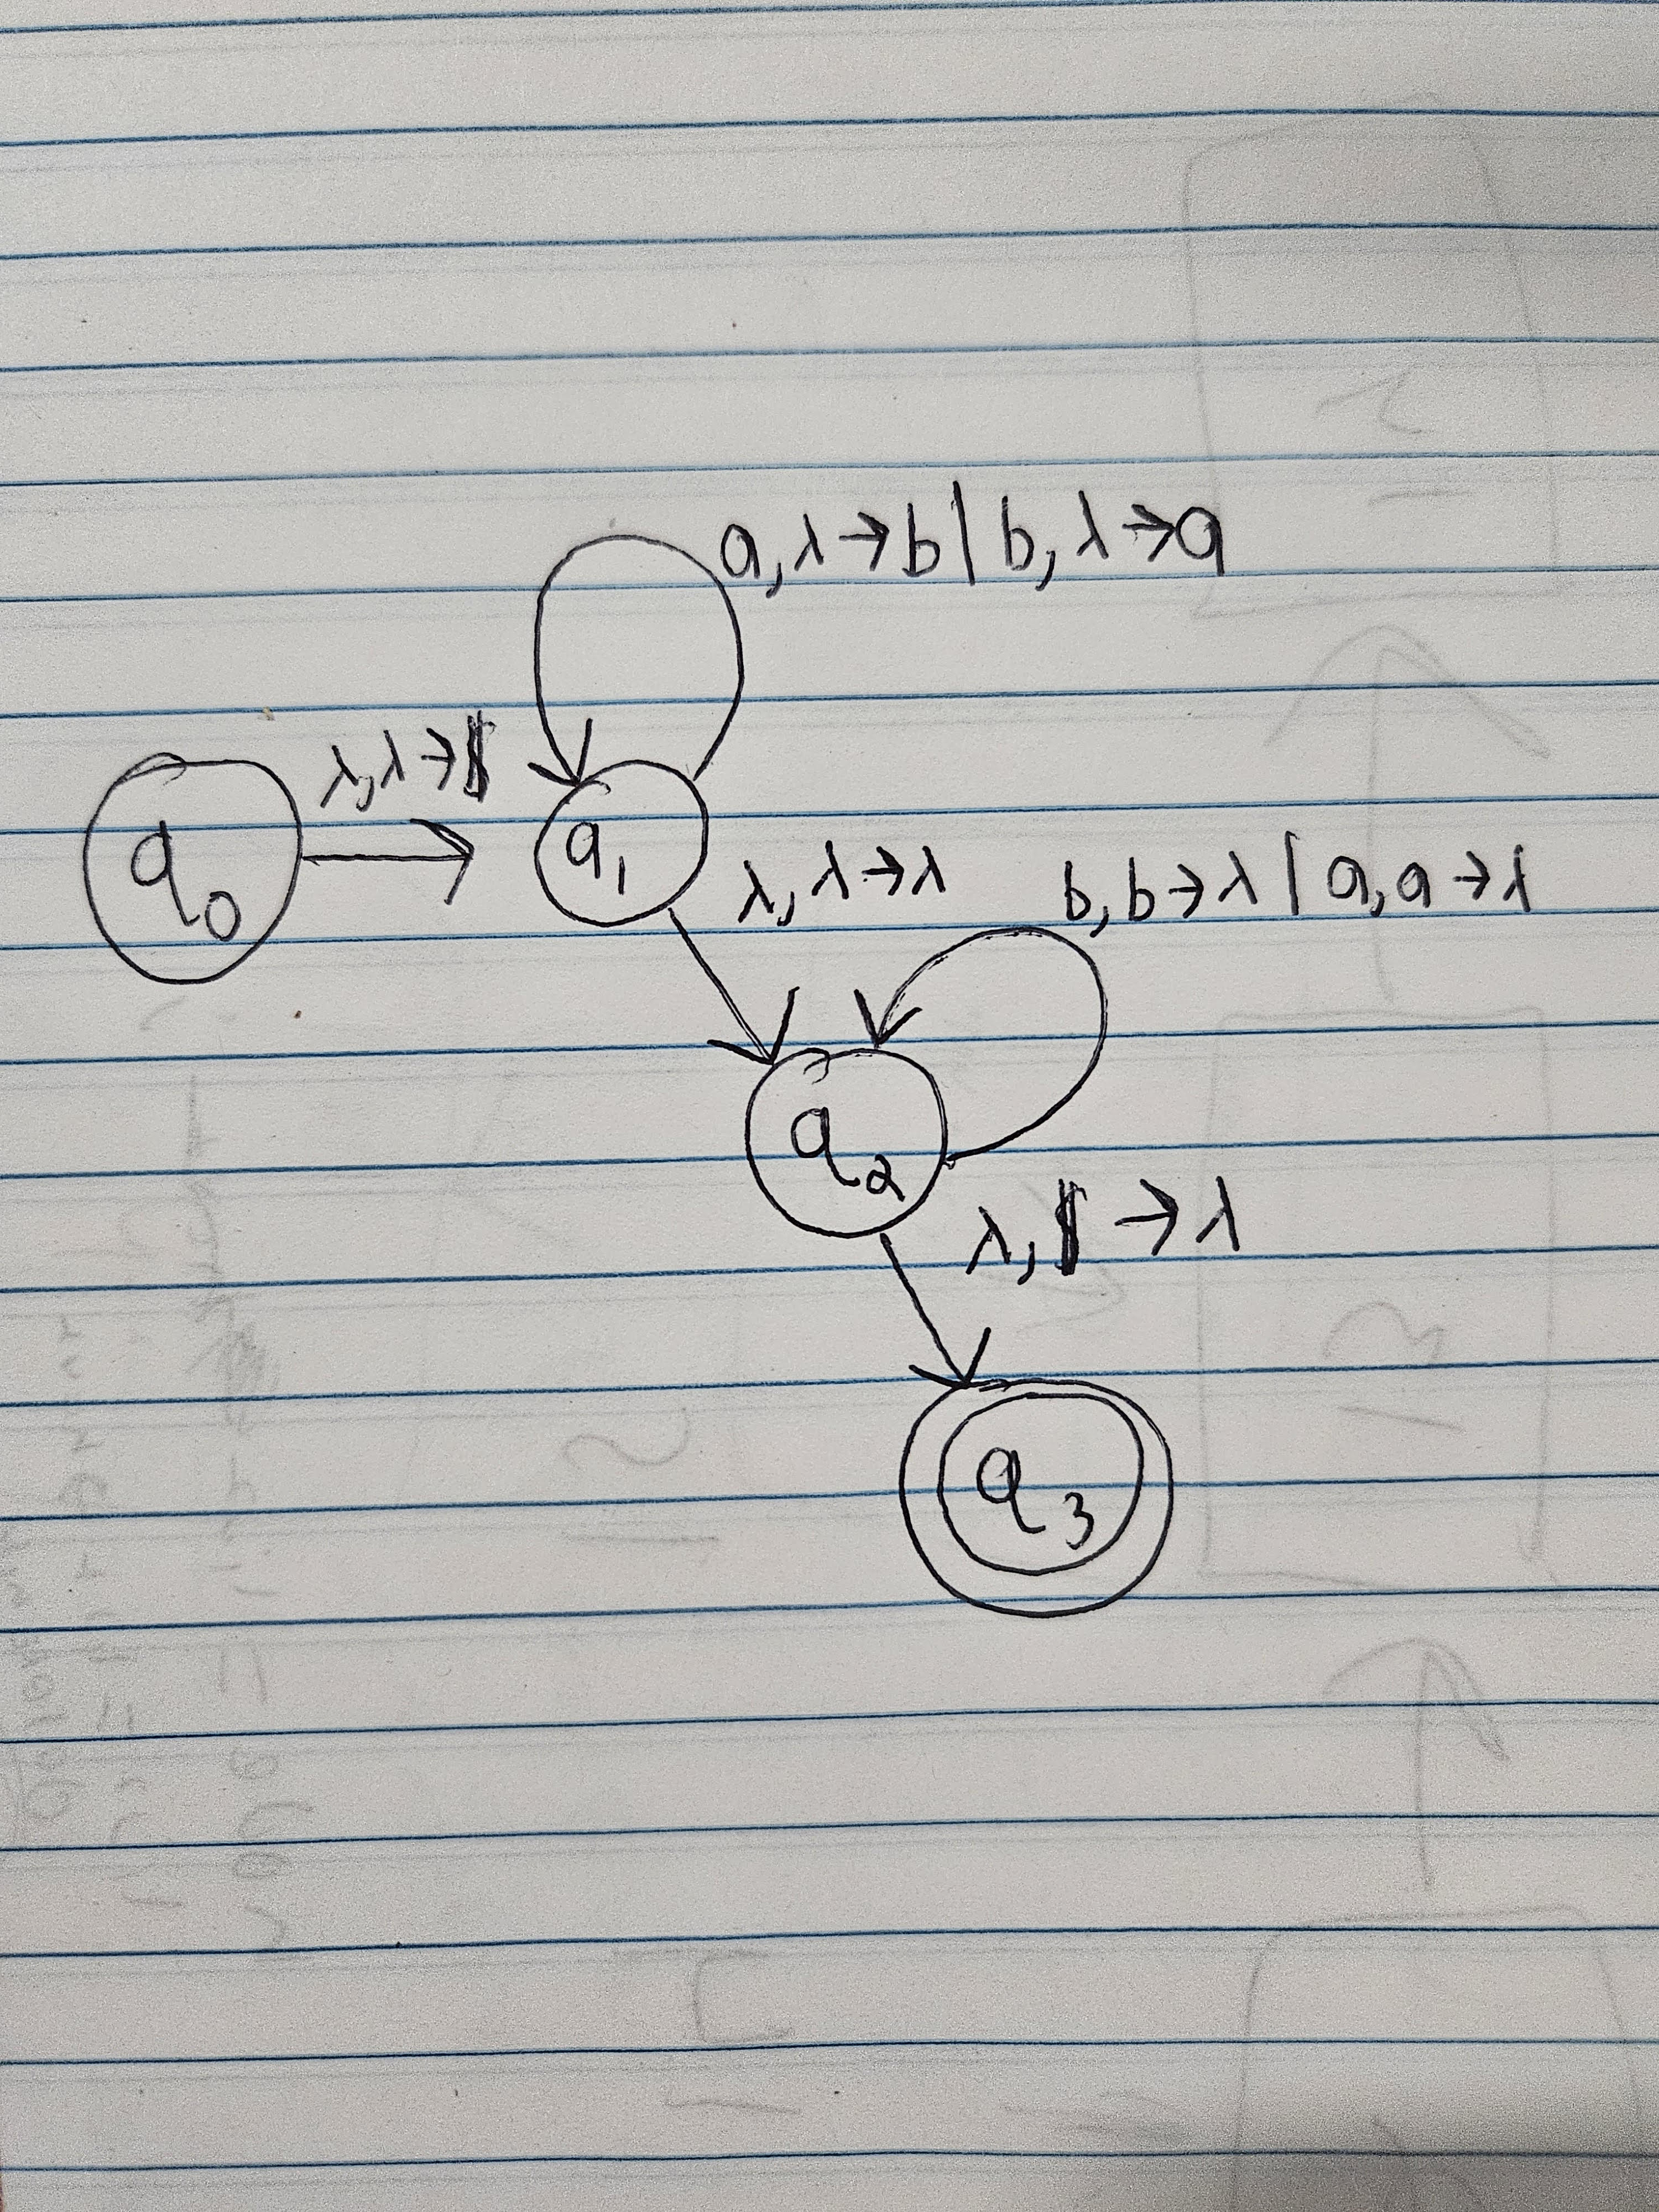 a, λ → b | b, λ → a
λ, λ → $
q₀
q₁
λ, λ → λ
b, b → λ | a, a → λ
q₂
λ, $ → λ
q₃